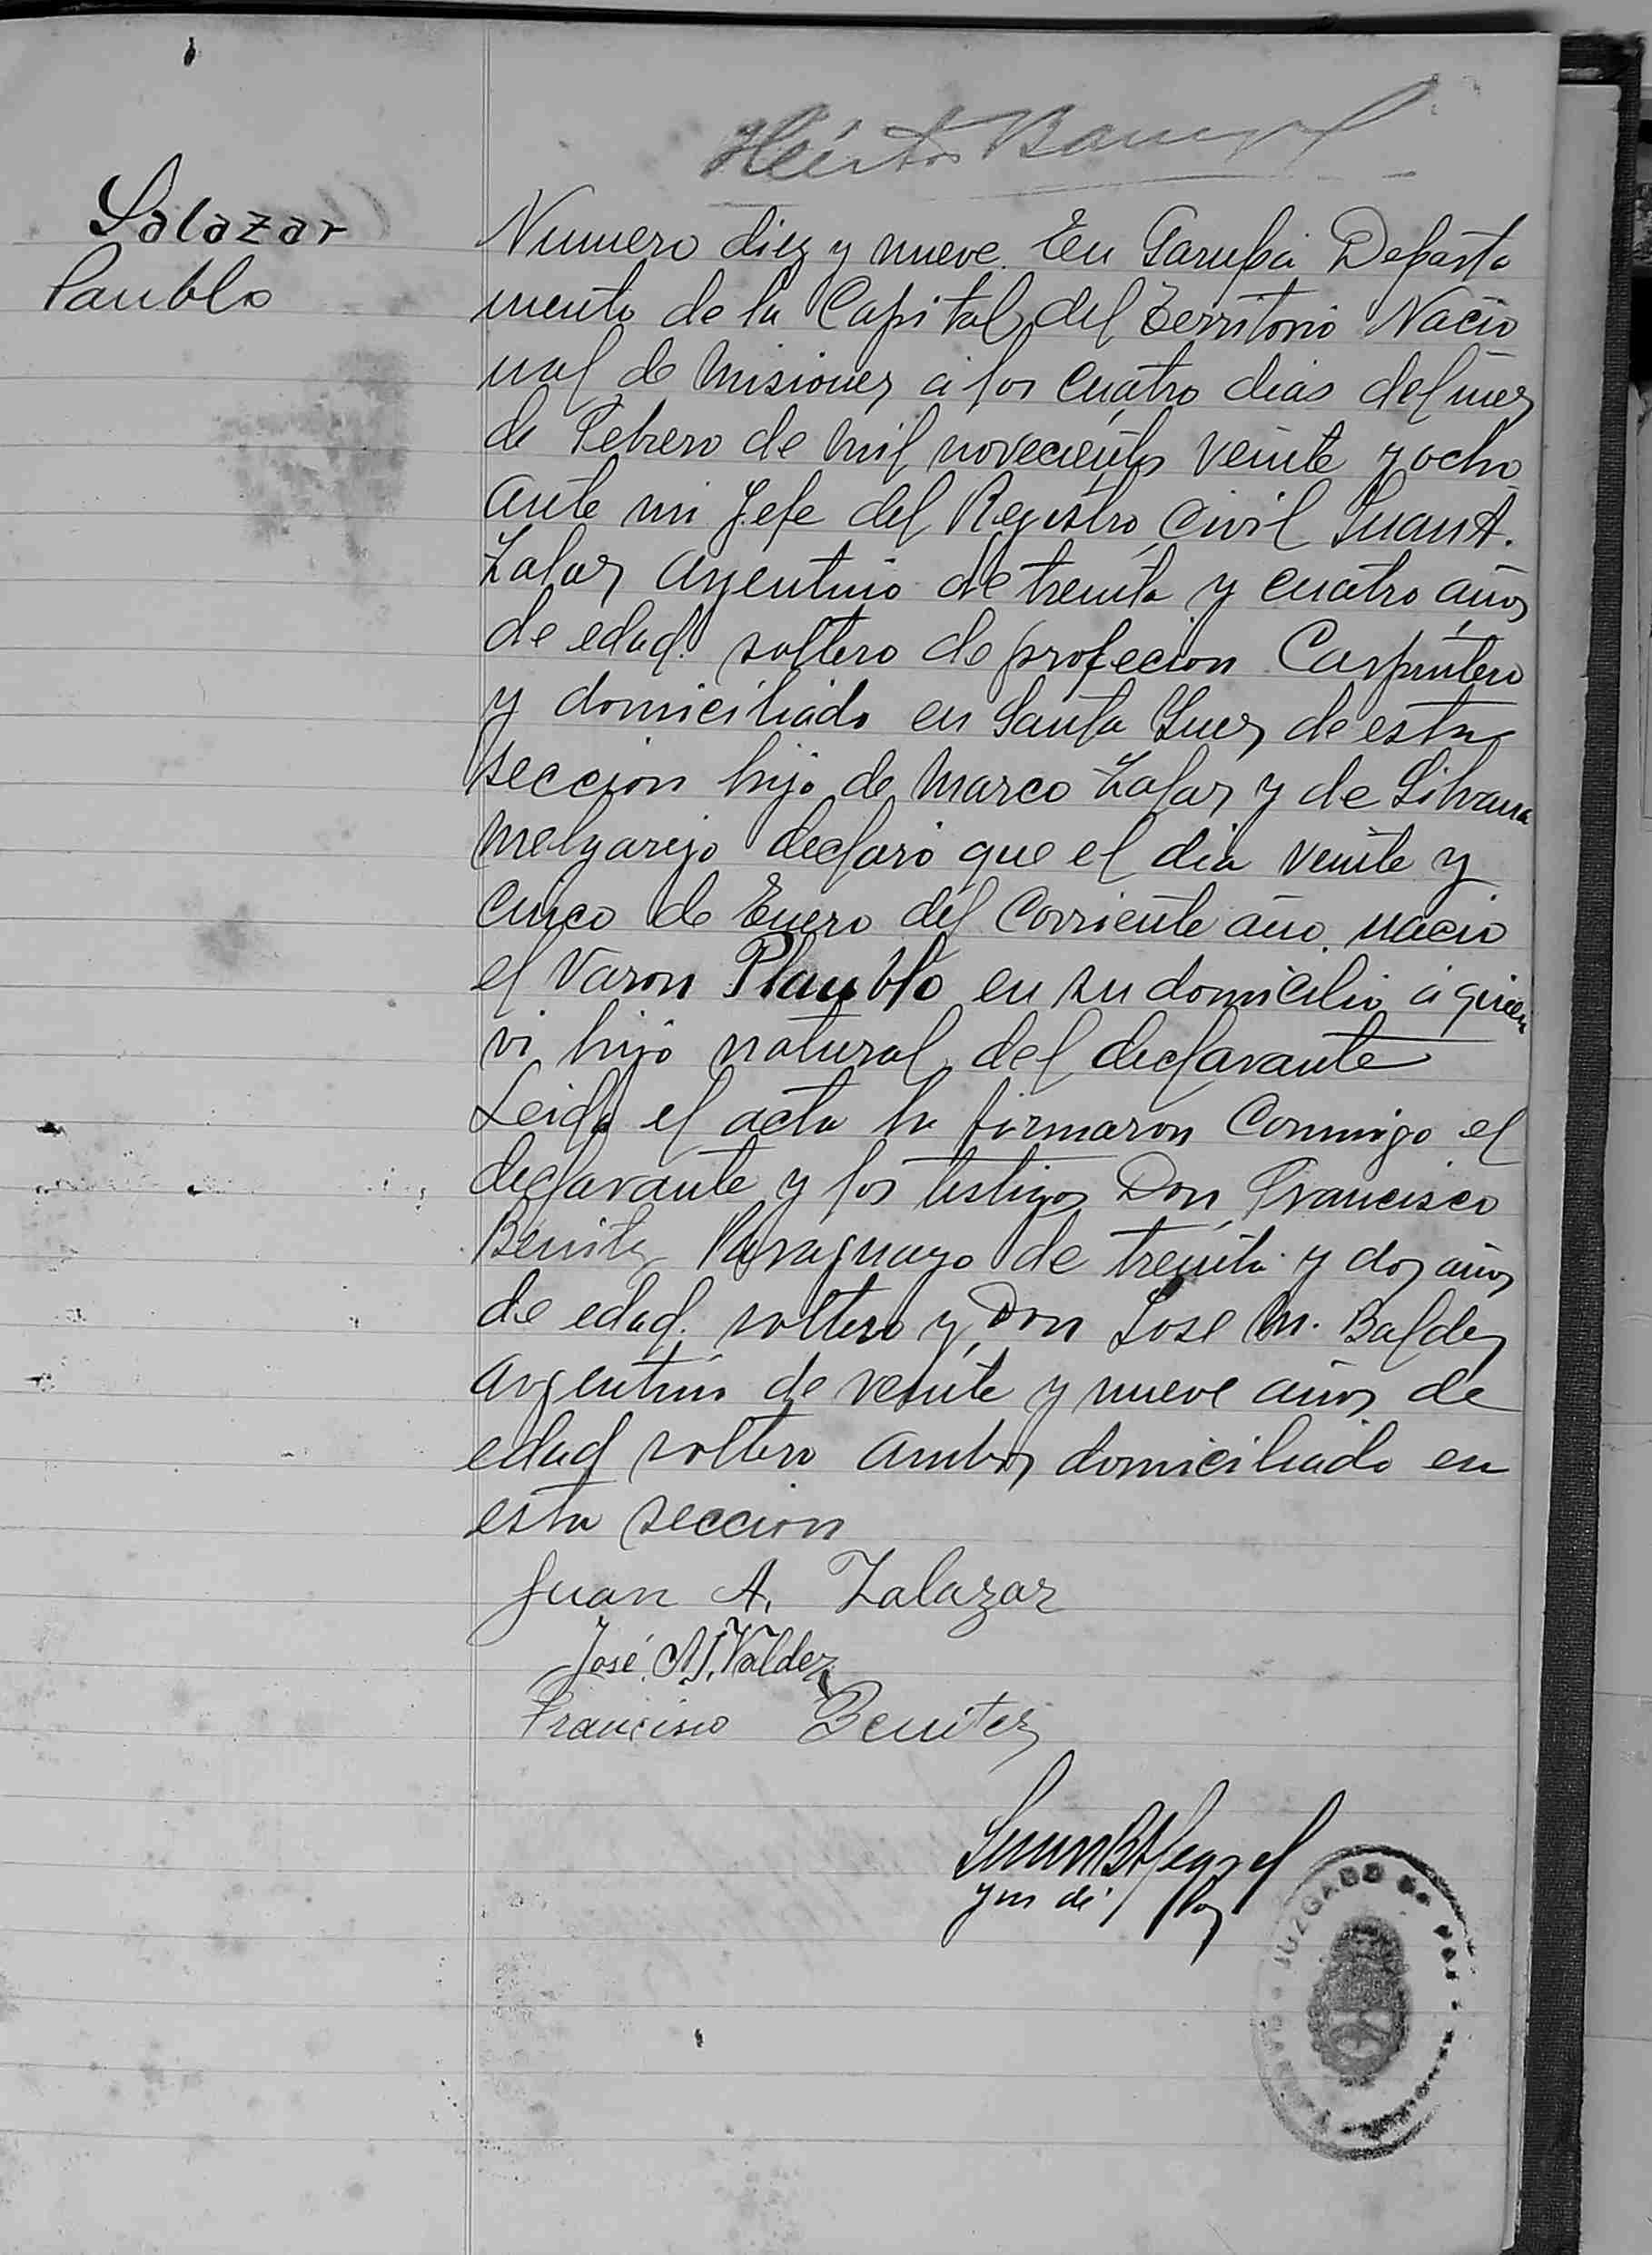 Salazar
Paublo
Numero diez y nueve. En Garupá Departa
mento de la Capital del Territorio Nacio
nal de Misiones a los cuatro dias del mes
de Febrero de mil novecientos veinte y ocho
ante mi Jefe del Registro Civil Juan A.
Zalaz argentino de treinta y cuatro años
de edad. soltero de profecion Carpintero
y domiciliado en Santa Ines de esta
seccion hijo de Marco Zalaz y de Silvana
Melgarejo declaró que el dia veinte y
cinco de Enero del Corriente año. nacio
el Varon Plaublo en su domicilio á quien
vi hijo natural del declarante
Leida el acta la firmaron Conmigo el
declarante y los testigos Don Francisco
Benitez Paraguayo de treinta y dos años
de edad. soltero y Don Jose M. Baldez
argentino de veinte y nueve años de
edad soltero ambos domiciliado en
esta seccion
Juan A. Zalazar
José M. Valdez
Francisco Benitez
JUZGADO DE PAZ